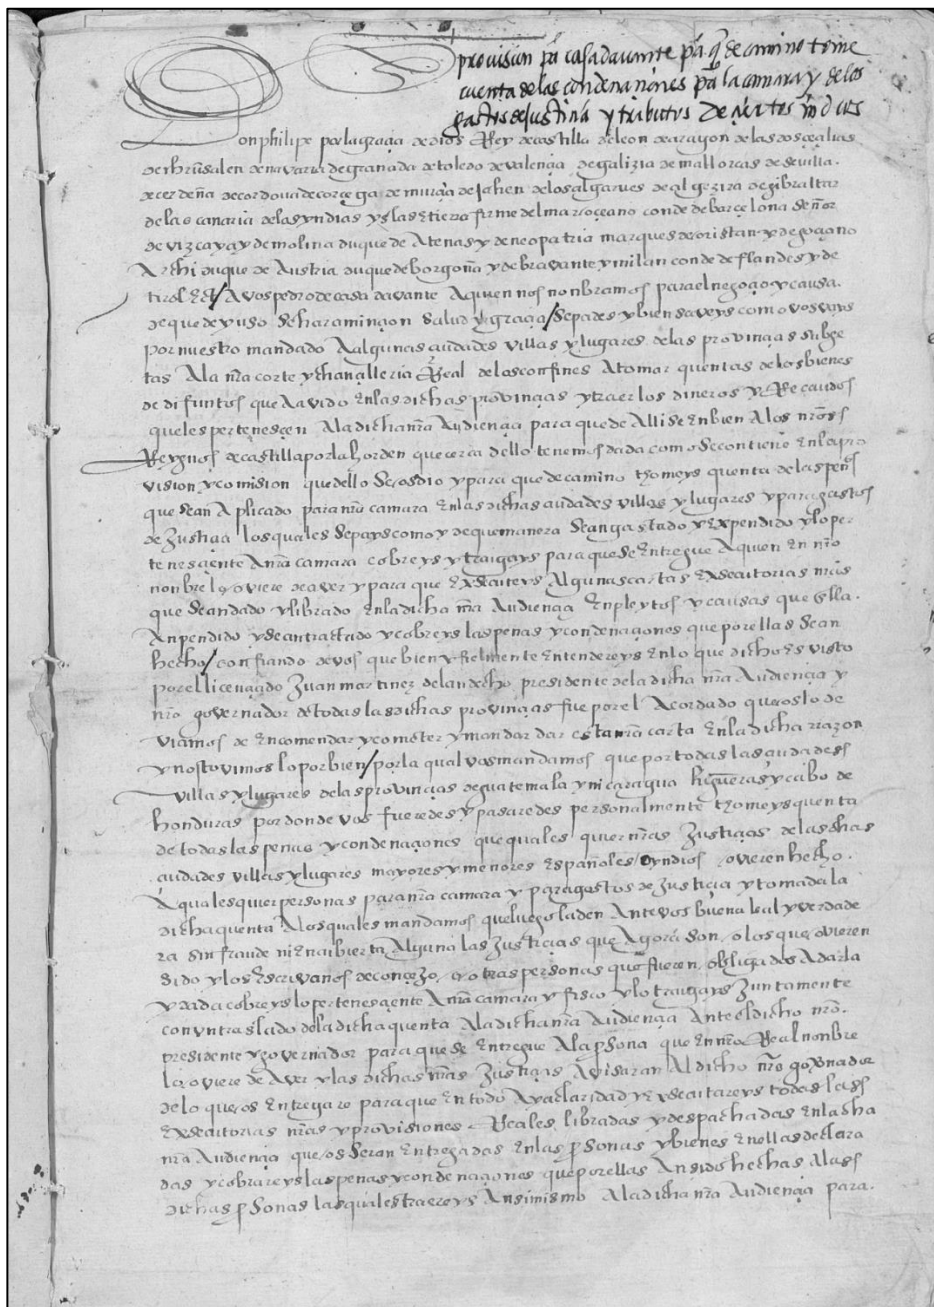 provision pa casadavante pa q de camino tome
cuenta de las condenaciones pa la camara y de los
gastos de justicia y tributos de ciertos
Don philipe por la graçia de dios Rey de castilla de leon de aragon de las dos çeçilias
de hierusalen de navarra de granada de toledo de valençia de galizia de mallorcas de sevilla.
de cerdeña de cordova de corçega de murçia de Jahen de los algarves de algezira de gibraltar
de las canaria de las yndias yslas e tierra firme del mar oçeano conde de barçelona señor
de vizcaya y de molina duque de Atenas y de neopatria marques de oristan y de goçiano
Archiduque de Austria duque de borgoña y de bravante y milan conde de flandes y de
tirol etc / A vos pedro de casa davante A quien nos nonbramos para el negoçio y causa.
de que de yuso se hara minçion salud y graçia / sepades y bien saveys como vos vays
por nuestro mandado A algunas çiudades villas y lugares de las provinçias subge
tas A la nra corte y chançilleria Real de los confines A tomar quentas de los bienes
de difuntos que A avido en las dichas provinçias y traer los dineros y Recaudos
que les pertenesçen A la dicha nra Audiençia para que de Alli se enbien A los nros
Reygnos de castilla por la horden que çerca dello tenemos dada como se contiene en la pro
vision y comision que dello se os dio y para que de camino thomeys quenta de las penas
que sean Aplicado para nra camara en las dichas çiudades villas y lugares y para gastos
de Justiçia los quales sepays como y de que manera sean gastado y expendido y lo per
tenesçiente A nra camara cobreys y traigays para que se entregue A quien en nro
nonbre lo oviere de aver y para que executeys Algunas cartas executorias nras
que sean dado y librado en la dicha nra Audiençia en pleytos y causas que en ella.
An pendido y sean tractado y cobreys las penas y condenaçiones que por ellas sean
hecho / confiando de vos que bien y fielmente entendereys en lo que dicho es visto
por el liçençiado Juan martinez de landecho presidente de la dicha nra Audiençia y
nro governador de todas las dichas provinçias fue por el Acordado que os lo de
viamos de encomendar y cometer y mandar dar esta nra carta en la dicha rrazon
y nos tovimos lo por bien / por la qual vos mandamos que por todas las çiudades
villas y lugares de las provinçias de guatemala y nicaragua higueras y cabo de
honduras por donde vos fueredes y pasaredes personalmente thomeys quenta
de todas las penas y condenaçiones que quales quier nras Justiçias de las dhas
çiudades villas y lugares mayores y menores españoles o yndios ovieren hecho.
A quales quier personas para nra camara y para gastos de Justicia y tomada la
dicha quenta A los quales mandamos que luego la den Ante vos buena leal y verdade
ra sin fraude ni encubierta Alguna las Justicias que Agora son o los que ovieren
sido y los escrivanos de conçejo o otras personas que fueren obligados A darla
y dada cobreys lo perteneçiente A nra camara y fisco y lo traigays Juntamente
con vn traslado de la dicha quenta A la dicha nra Audiençia Ante el dicho nro.
presidente y governador para que se entregue A la persona que en nro Real nonbre
lo oviere de Aver y las dichas nras Justiçias Avisaran Al dicho nro governador
de lo que os entregare para que en todo Aya claridad y executareys todas las
executorias nras y provisiones Reales libradas y despachadas en la dha
nra Audiençia que os seran entregadas en las personas y bienes en ellas declara
das y cobrareys las penas y condenaçiones que por ellas An sido hechas A las
dichas personas las quales traereys Ansimismo A la dicha nra Audiençia para.